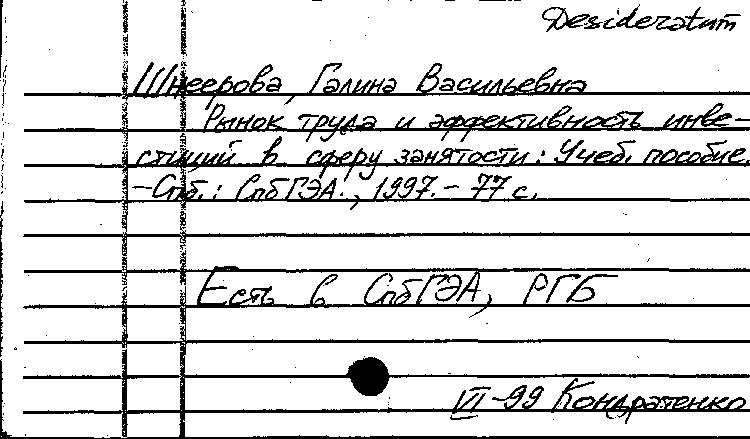 Desideratum
Шнеерова, Галина Васильевна
Рынок труда и эффективность инве-
стиций в сферу занятости: Учеб. пособие.
-Спб.: СпбГЭА., 1997.- 77 с.
Есть в СпбГЭА, РГБ
VI-99 Кондратенко